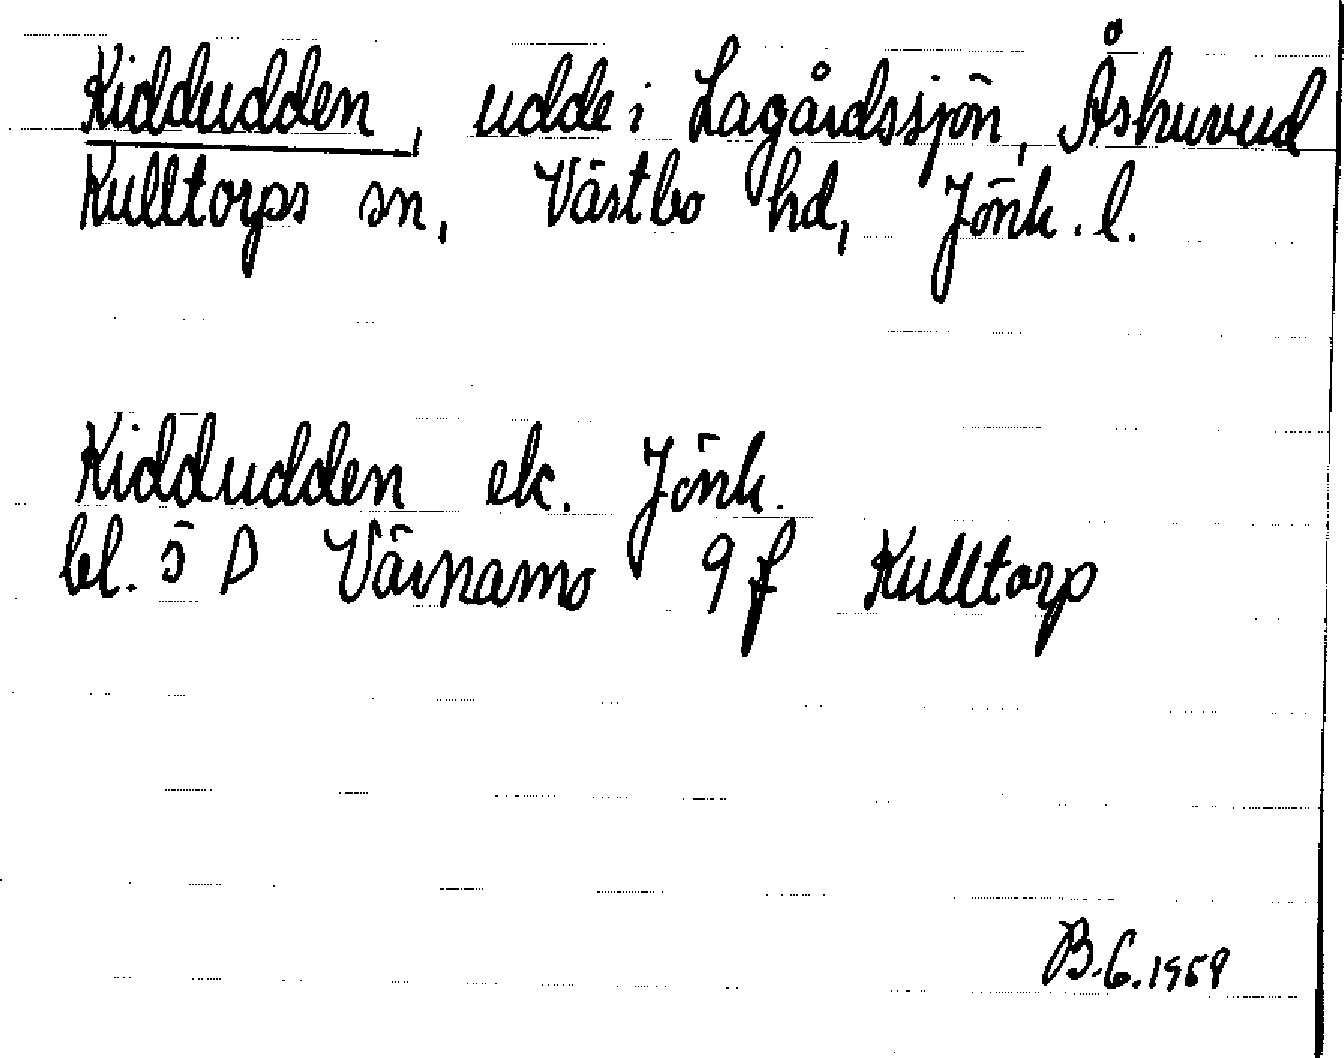 Kiddudden, udde i Lagårdssjön, Åshuvud
Kulltorps sn, Västbo hd, Jönk. l.
Kiddudden ek. Jönk.
bl. 5 D Värnamo 9 f Kulltorp
B.G. 1958